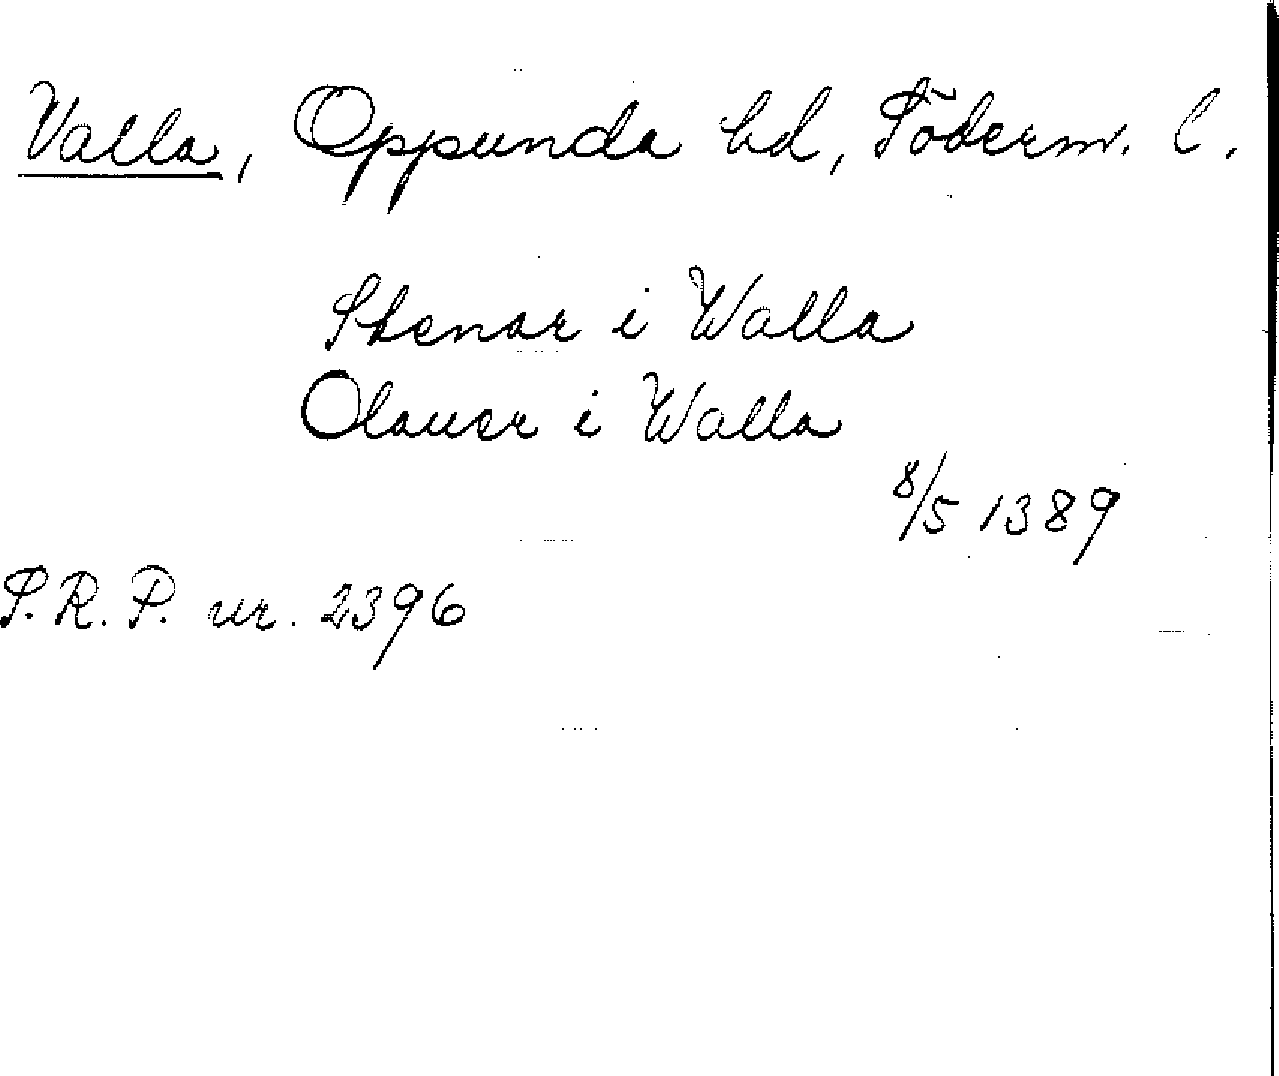 Valla, Oppunda hd, Söderm. l.
Stenar i Walla
Olauer i Walla
8/5 1389
S.R.P. nr. 2396